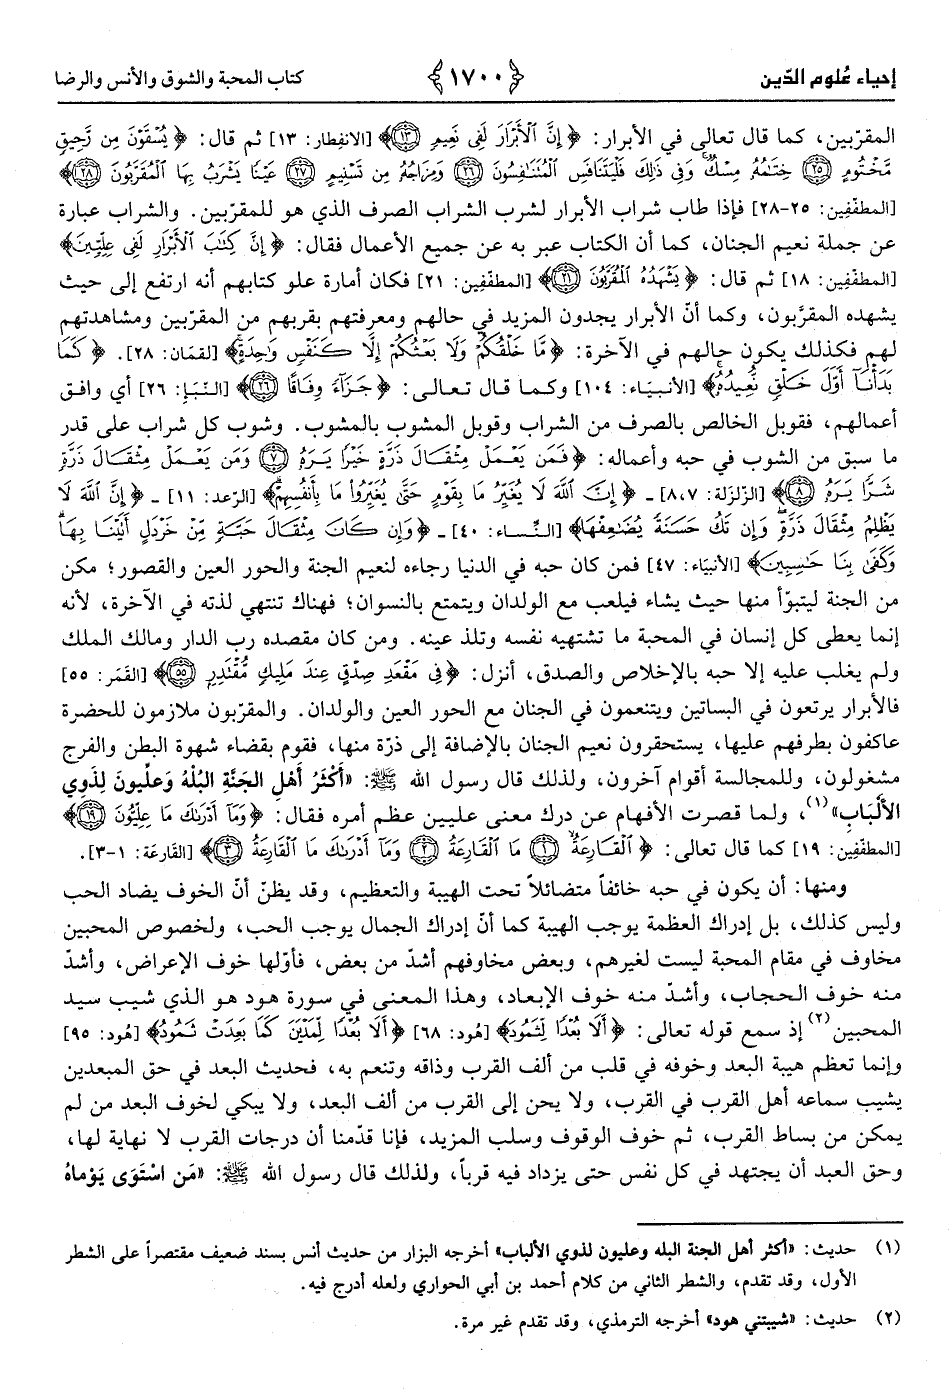 إحياء عُلوم الدّين ﴿١٧٠٠﴾ كتاب المحبة والشوق والأنس والرضا
المقرّبين، كما قال تعالى في الأبرار: ﴿إِنَّ ٱلْأَبْرَارَ لَفِى نَعِيمٍ ۝١٣﴾ [الانفِطار: ١٣] ثم قال: ﴿يُسْقَوْنَ مِن رَّحِيقٍ
مَّخْتُومٍ ۝٢٥ خِتَٰمُهُۥ مِسْكٌ وَفِى ذَٰلِكَ فَلْيَتَنَافَسِ ٱلْمُتَنَٰفِسُونَ ۝٢٦ وَمِزَاجُهُۥ مِن تَسْنِيمٍ ۝٢٧ عَيْنًا يَشْرَبُ بِهَا ٱلْمُقَرَّبُونَ ۝٢٨﴾
[المطفّفِين: ٢٥-٢٨] فإذا طاب شراب الأبرار لشرب الشراب الصرف الذي هو للمقرّبين. والشراب عبارة
عن جملة نعيم الجنان، كما أن الكتاب عبر به عن جميع الأعمال فقال: ﴿إِنَّ كِتَٰبَ ٱلْأَبْرَارِ لَفِى عِلِّيِّينَ﴾
[المطفّفِين: ١٨] ثم قال: ﴿يَشْهَدُهُ ٱلْمُقَرَّبُونَ ۝٢١﴾ [المطفّفِين: ٢١] فكان أمارة علو كتابهم أنه ارتفع إلى حيث
يشهده المقرّبون، وكما أنّ الأبرار يجدون المزيد في حالهم ومعرفتهم بقربهم من المقرّبين ومشاهدتهم
لهم فكذلك يكون حالهم في الآخرة: ﴿مَّا خَلْقُكُمْ وَلَا بَعْثُكُمْ إِلَّا كَنَفْسٍ وَٰحِدَةٍ﴾ [لقمَان: ٢٨]. ﴿كَمَا
بَدَأْنَآ أَوَّلَ خَلْقٍ نُّعِيدُهُۥ﴾ [الأنبيَاء: ١٠٤] وكما قال تعالى: ﴿جَزَآءً وِفَاقًا ۝٢٦﴾ [النّبَإ: ٢٦] أي وافق
أعمالهم، فقوبل الخالص بالصرف من الشراب وقوبل المشوب بالمشوب. وشوب كل شراب على قدر
ما سبق من الشوب في حبه وأعماله: ﴿فَمَن يَعْمَلْ مِثْقَالَ ذَرَّةٍ خَيْرًا يَرَهُۥ ۝٧ وَمَن يَعْمَلْ مِثْقَالَ ذَرَّةٍ
شَرًّا يَرَهُۥ ۝٨﴾ [الزّلزَلة: ٨،٧] ـ ﴿إِنَّ ٱللَّهَ لَا يُغَيِّرُ مَا بِقَوْمٍ حَتَّىٰ يُغَيِّرُوا۟ مَا بِأَنفُسِهِمْ﴾ [الرّعد: ١١] ـ ﴿إِنَّ ٱللَّهَ لَا
يَظْلِمُ مِثْقَالَ ذَرَّةٍ وَإِن تَكُ حَسَنَةً يُضَٰعِفْهَا﴾ [النِّساء: ٤٠] ـ ﴿وَإِن كَانَ مِثْقَالَ حَبَّةٍ مِّنْ خَرْدَلٍ أَتَيْنَا بِهَا
وَكَفَىٰ بِنَا حَٰسِبِينَ﴾ [الأنبيَاء: ٤٧] فمن كان حبه في الدنيا رجاءه لنعيم الجنة والحور العين والقصور؛ مكن
من الجنة ليتبوّأ منها حيث يشاء فيلعب مع الولدان ويتمتع بالنسوان؛ فهناك تنتهي لذته في الآخرة، لأنه
إنما يعطى كل إنسان في المحبة ما تشتهيه نفسه وتلذ عينه. ومن كان مقصده رب الدار ومالك الملك
ولم يغلب عليه إلا حبه بالإخلاص والصدق، أنزل: ﴿فِى مَقْعَدِ صِدْقٍ عِندَ مَلِيكٍ مُّقْتَدِرٍ ۝٥٥﴾ [القمَر: ٥٥]
فالأبرار يرتعون في البساتين ويتنعمون في الجنان مع الحور العين والولدان. والمقرّبون ملازمون للحضرة
عاكفون بطرفهم عليها، يستحقرون نعيم الجنان بالإضافة إلى ذرّة منها، فقوم بقضاء شهوة البطن والفرج
مشغولون، وللمجالسة أقوام آخرون، ولذلك قال رسول الله ﷺ: «أَكْثَرُ أَهْلِ الجَنَّةِ البُلْهُ وَعِلِّيونَ لِذَوِي
الأَلْبَابِ»(١)، ولما قصرت الأفهام عن درك معنى عليين عظم أمره فقال: ﴿وَمَآ أَدْرَىٰكَ مَا عِلِّيُّونَ ۝١٩﴾
[المطفّفِين: ١٩] كما قال تعالى: ﴿ٱلْقَارِعَةُ ۝١ مَا ٱلْقَارِعَةُ ۝٢ وَمَآ أَدْرَىٰكَ مَا ٱلْقَارِعَةُ ۝٣﴾ [القَارعَة: ١-٣].
ومنها: أن يكون في حبه خائفاً متضائلاً تحت الهيبة والتعظيم، وقد يظنّ أنّ الخوف يضاد الحب
وليس كذلك، بل إدراك العظمة يوجب الهيبة كما أنّ إدراك الجمال يوجب الحب، ولخصوص المحبين
مخاوف في مقام المحبة ليست لغيرهم، وبعض مخاوفهم أشدّ من بعض، فأوّلها خوف الإعراض، وأشدّ
منه خوف الحجاب، وأشدّ منه خوف الإبعاد، وهذا المعنى في سورة هود هو الذي شيب سيد
المحبين(٢) إذ سمع قوله تعالى: ﴿أَلَا بُعْدًا لِّثَمُودَ﴾ [هُود: ٦٨] ﴿أَلَا بُعْدًا لِّمَدْيَنَ كَمَا بَعِدَتْ ثَمُودُ﴾ [هُود: ٩٥]
وإنما تعظم هيبة البعد وخوفه في قلب من ألف القرب وذاقه وتنعم به، فحديث البعد في حق المبعدين
يشيب سماعه أهل القرب في القرب، ولا يحن إلى القرب من ألف البعد، ولا يبكي لخوف البعد من لم
يمكن من بساط القرب، ثم خوف الوقوف وسلب المزيد، فإنا قدّمنا أن درجات القرب لا نهاية لها،
وحق العبد أن يجتهد في كل نفس حتى يزداد فيه قرباً، ولذلك قال رسول الله ﷺ: «مَن اسْتَوَى يَوْماهُ
(١) حديث: «أكثر أهل الجنة البله وعليون لذوي الألباب» أخرجه البزار من حديث أنس بسند ضعيف مقتصراً على الشطر
الأول، وقد تقدم، والشطر الثاني من كلام أحمد بن أبي الحواري ولعله أدرج فيه.
(٢) حديث: «شيبتني هود» أخرجه الترمذي، وقد تقدم غير مرة.